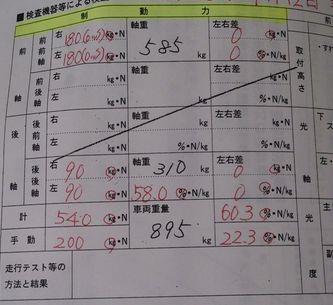 ■検査機器等による検
制 動 力
前軸 前前軸 右 180(ロック) kg・N 軸重 585 kg 左右差 0 %・N/kg
左 180(ロック) kg・N 0 %・N/kg
取付高さ
前後軸 右 kg・N 軸重 左右差
左 kg・N kg %・N/kg
後軸 後前軸 右 kg・N 軸重 左右差
左 kg・N %・N/kg %・N/kg
後後軸 右 90 kg・N 軸重 310 kg 左右差 0 %・N/kg
左 90 kg・N 58.0 %・N/kg 0 %・N/kg
計 540 kg・N 車両重量 895 kg 60.3 %・N/kg
手動 200 kg・N 22.3 %・N/kg
走行テスト等の
方法と結果